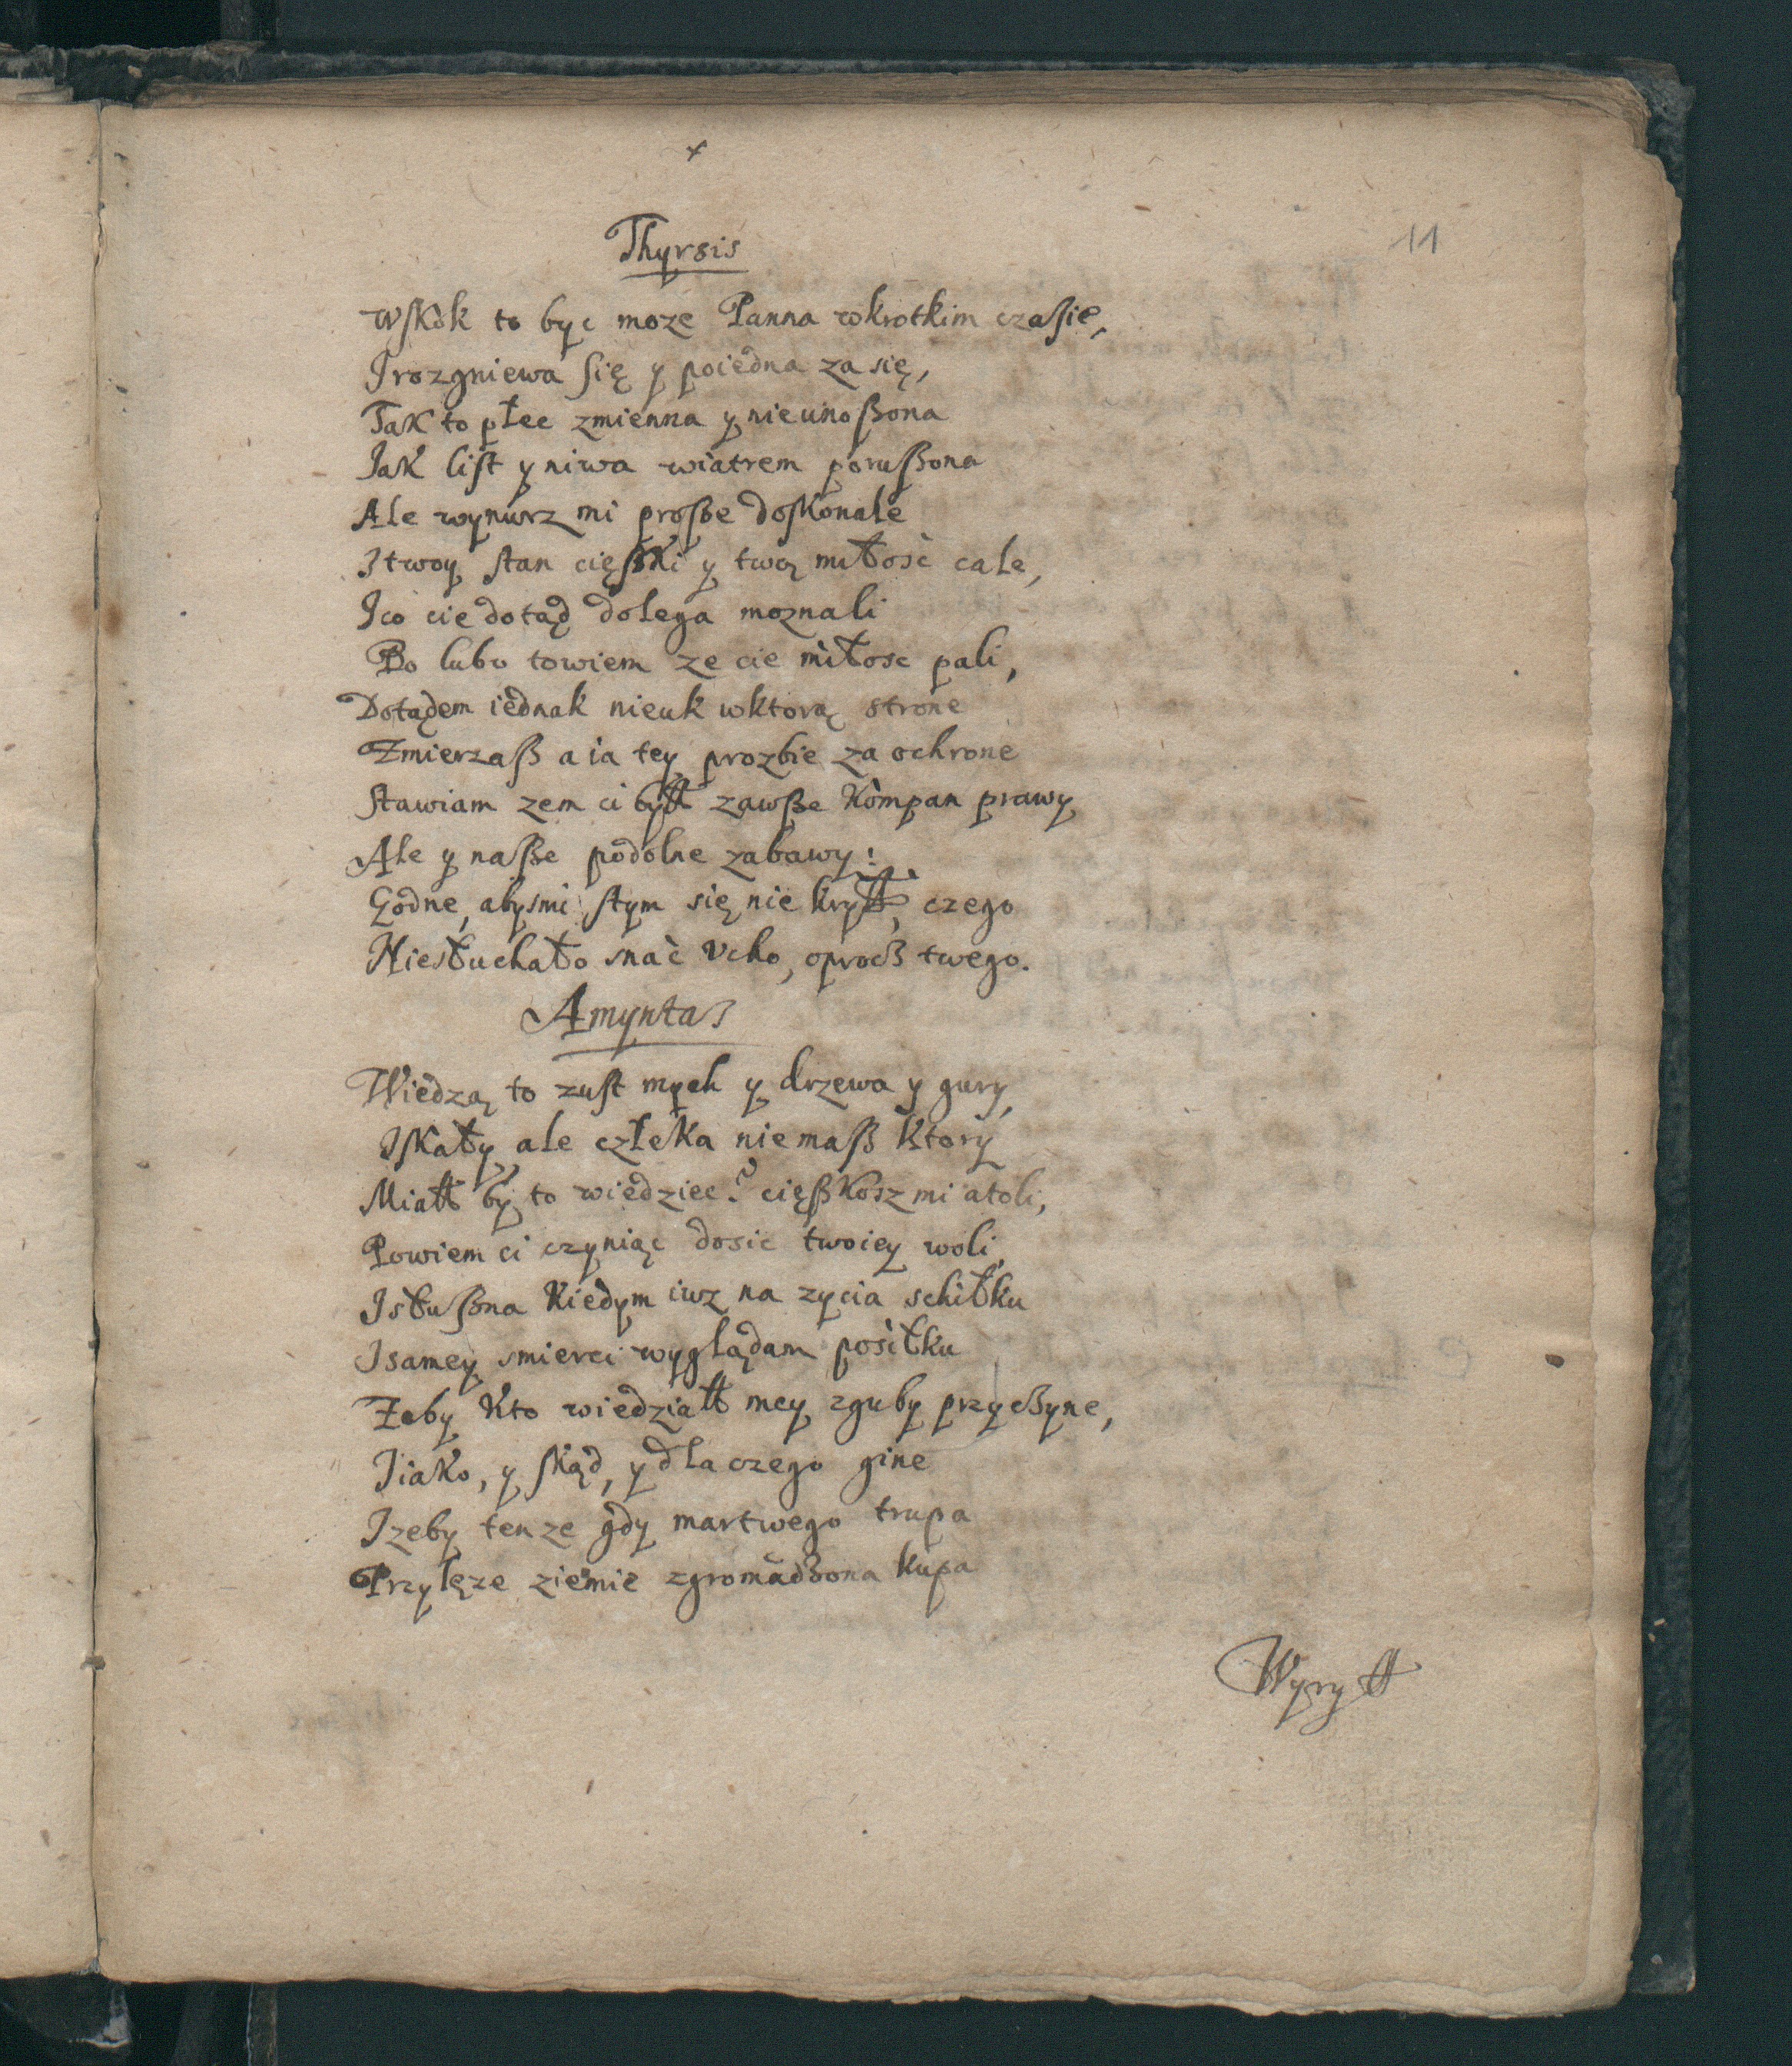 11
Thyrsis
Wskok to byc moze Panna wkrotkim czaſie,
Irozgniewa ſię y poiedna za się,
Tak to płec zmienna y nieunoßona
Jak liſt y niwa wiatrem porußona
Ale wynurz mi proßbe doſkonale
Itwoy ſtan cięßki y twą miłość cale,
Ico cie dotąd dolega moznali
Bo lubo towiem ze cie miłosc pali,
Dotądem iednak nieuk wktorą strone
Zmierzaß a ia tey prozbie za ochrone
ſtawiam zem ci była zawße Kompan prawy
Ale y naße podolne zabawy:
Godne, abysmi ſtym się nie krył, czego
Niesłuchało snać Vcho, oprocß twego.
Amyntas
Wiedzą to zuſt mych y drzewa y gury,
Iſkały, ale człeka niemaß ktory
Miałł by to wiedziec? cięßkosz mi atoli,
Powiem ci czyniąc dosic twoiey woli,
Isłußna Kiedym iuz na zycia schiłku
Isamey smierci wyglądam posiłku
Zeby Kto wiedziałł mey zguby przycßyne,
Iiako, y ſkąd, y dla czego gine
Izeby tenze gdy martwego trupa
Przylęze ziemie zgromadßona kupa
Wyrył